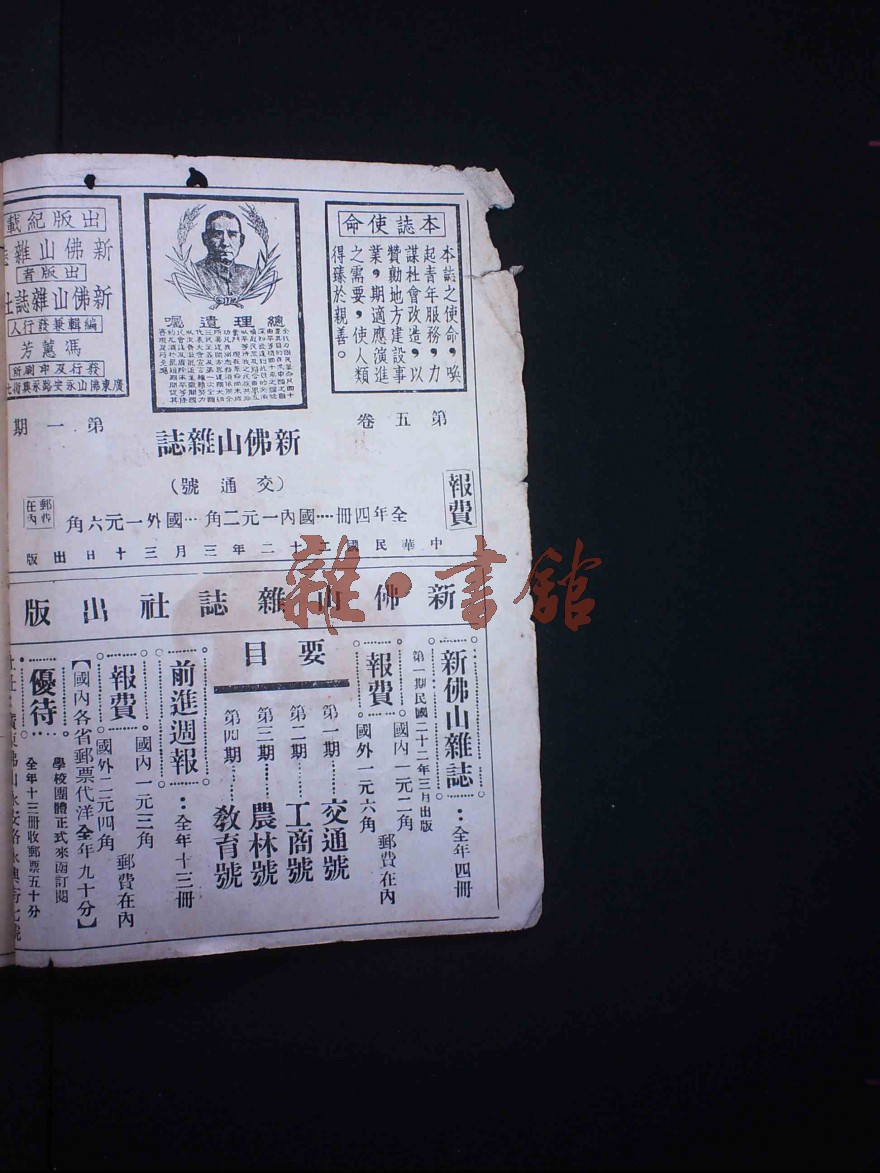 本誌使命
本誌之使命，喚
起青年服務，力
謀社會改造，以
贊勷地方建設事
業，期適應演進
之需要，使人類
得臻於親善。
總理遺囑
出版紀載
新佛山雜誌
出版者
新佛山雜誌社
編輯兼發行人
馮蕙芳
發行及印刷所
廣東佛山永安路永興街七
第五卷
第一期
新佛山雜誌
（交通號）
報費
全年四冊…國內一元二角…國外一元六角
郵費在內
中華民國二十二年三月三十日出版
雜·書館
新佛山雜誌社出版
新佛山雜誌：全年四冊
第一期民國二十二年三月出版
報費
國內一元二角
國外一元六角
郵費在內
要目
第一期……交通號
第二期……工商號
第三期……農林號
第四期……教育號
前進週報：全年十三冊
報費
國內一元三角
國外二元四角
郵費在內
【國內各省郵票代洋全年九十分】
優待
學校團體正式來函訂閱
全年十三冊收郵票五十分
社址：廣東佛山永安路永興街七號